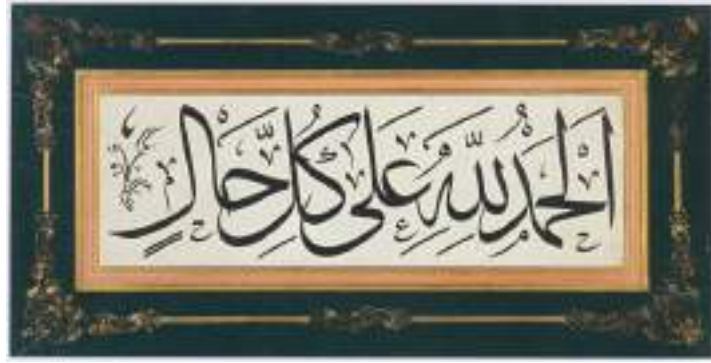 اَلْحَمْدُ لِلّٰهِ عَلَى كُلِّ حَالٍ